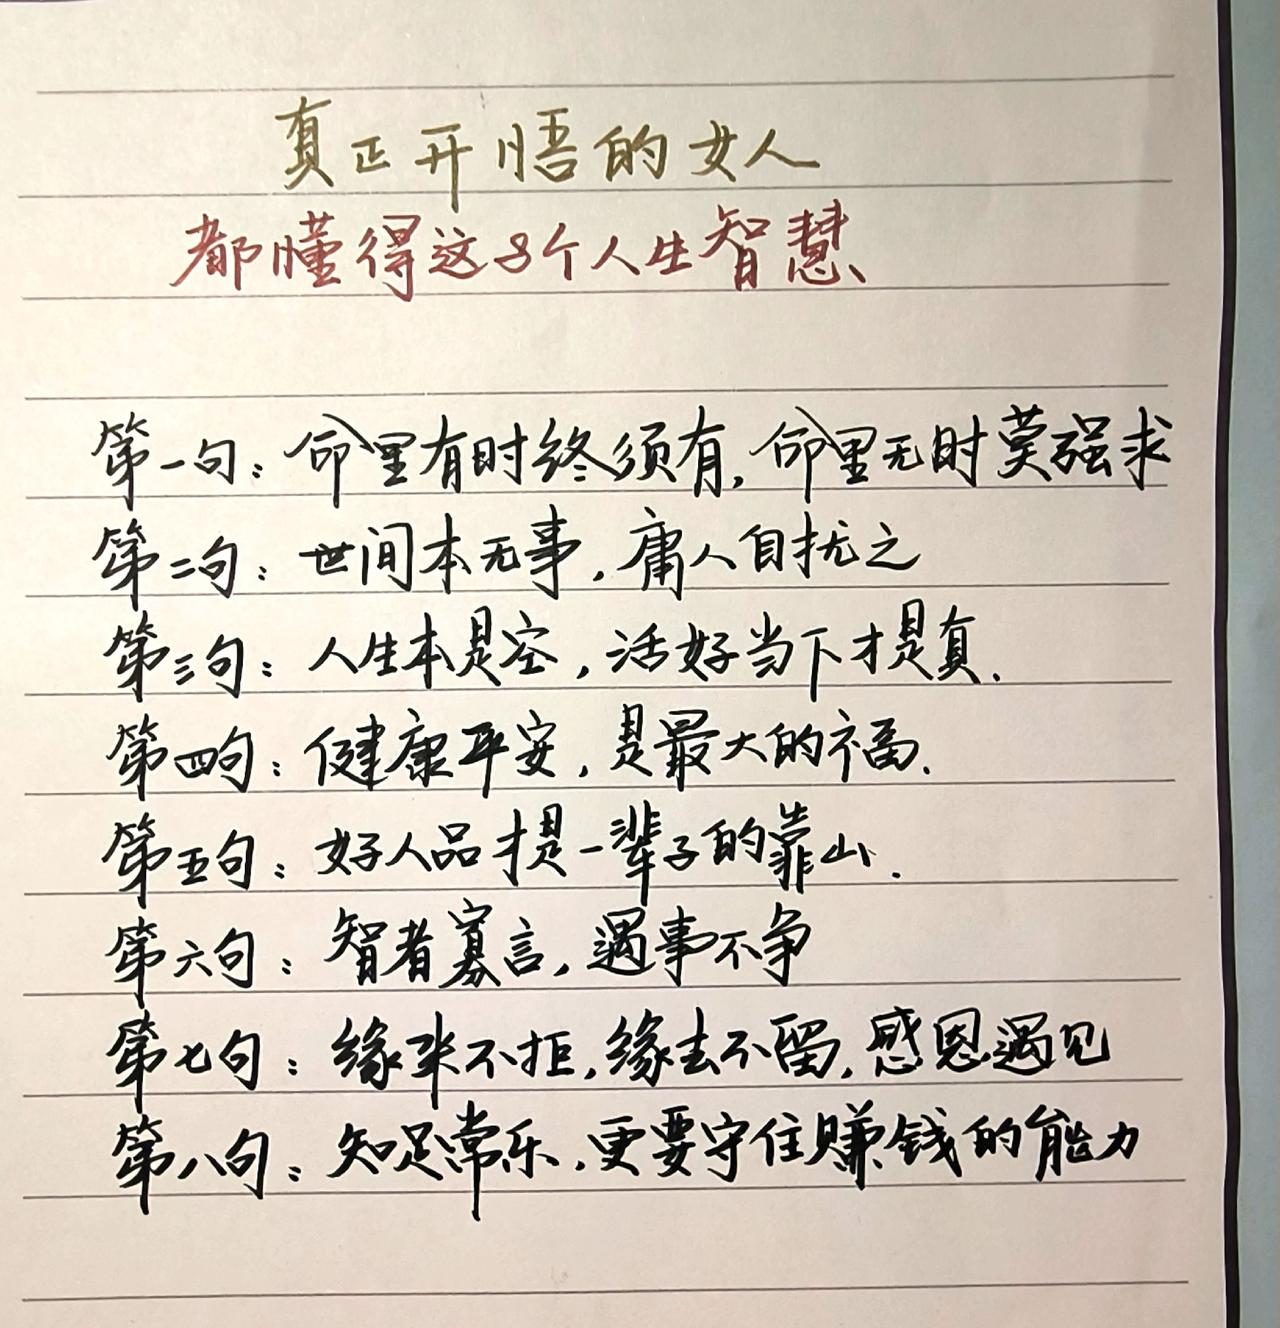 真正开悟的女人
都懂得这8个人生智慧
第一句：命里有时终须有，命里无时莫强求
第二句：世间本无事，庸人自扰之
第三句：人生本是空，活好当下才是真.
第四句：健康平安，是最大的福.
第五句：好人品才是一辈子的靠山.
第六句：智者寡言，遇事不争
第七句：缘来不拒，缘去不留，感恩遇见
第八句：知足常乐，更要守住赚钱的能力